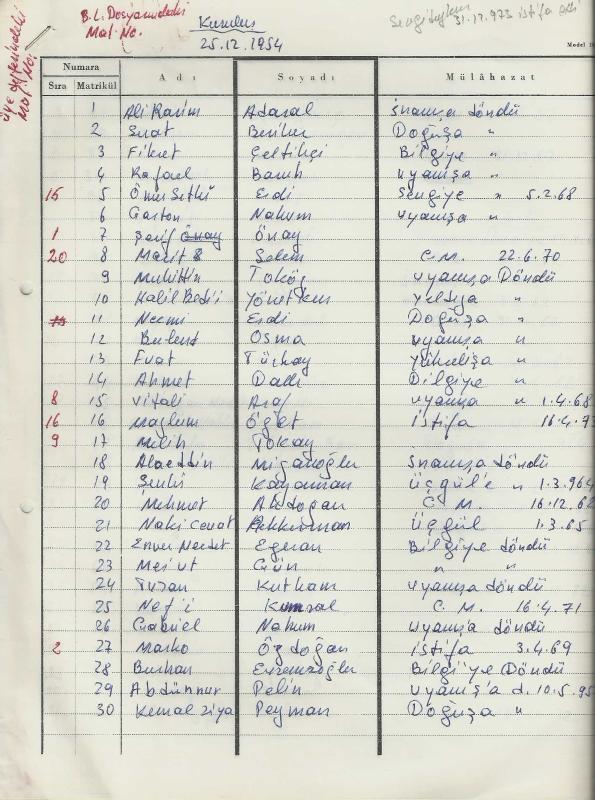 B.L. Dosyasındaki
Mat. No.
Kuruluş
25.12.1954
31.12.973 istifa etti
üye defterindeki
Mat. No.
Numara
Sıra Matrikül Adı Soyadı Mülâhazat
1 Ali Rasim Adasal İnanışa döndü
2 Suat Doğuşa "
3 Fikret Çeltikçi Bilgiye "
4 Rafael Baruh Uyanışa "
15 5 Ömer Sıtkı Erdi Sevgiye " 5.2.68
6 Gaston Nahum Uyanışa "
1 7 Şerif Önay Önay
20 8 Marit Selem Ç.M. 22.6.70
9 Muhittin Toköz Uyanışa Döndü
10 Halil Bedi'i Yönetken "
11 Necmi Erdi Doğuşa "
12 Bülend Osma Uyanışa "
13 Fuat Türkay Yükselişa "
14 Ahmet Dallı Bilgiye "
8 15 Vitali Uyanışa " 1.4.68
16 16 Mazlum Öğet İstifa 16.4.73
9 17 Melih Tokay
18 Alaeddin Mizanoğlu İnanışa döndü
19 Kayaman Üçgül'e " 1.3.964
20 Mehmet Akdoğan Ç.M. 16.12.62
21 Naki Cevat Akkerman Üçgül 1.3.65
22 Enver Necdet Egeran Bilgiye döndü
23 Mes'ut Gün " "
24 Turan Kutkam Uyanışa döndü
25 Nef'i Kumsal Ç.M. 16.4.71
26 Gabriel Nahum Uyanış'a döndü
2 27 Marko Özdoğan İstifa 3.4.69
28 Burhan Evrenzoğlu Bilgi'ye Döndü
29 Abdünnur Pelin Uyanış'a d. 10.5.95
30 Kemal Ziya Peyman Doğuşa "